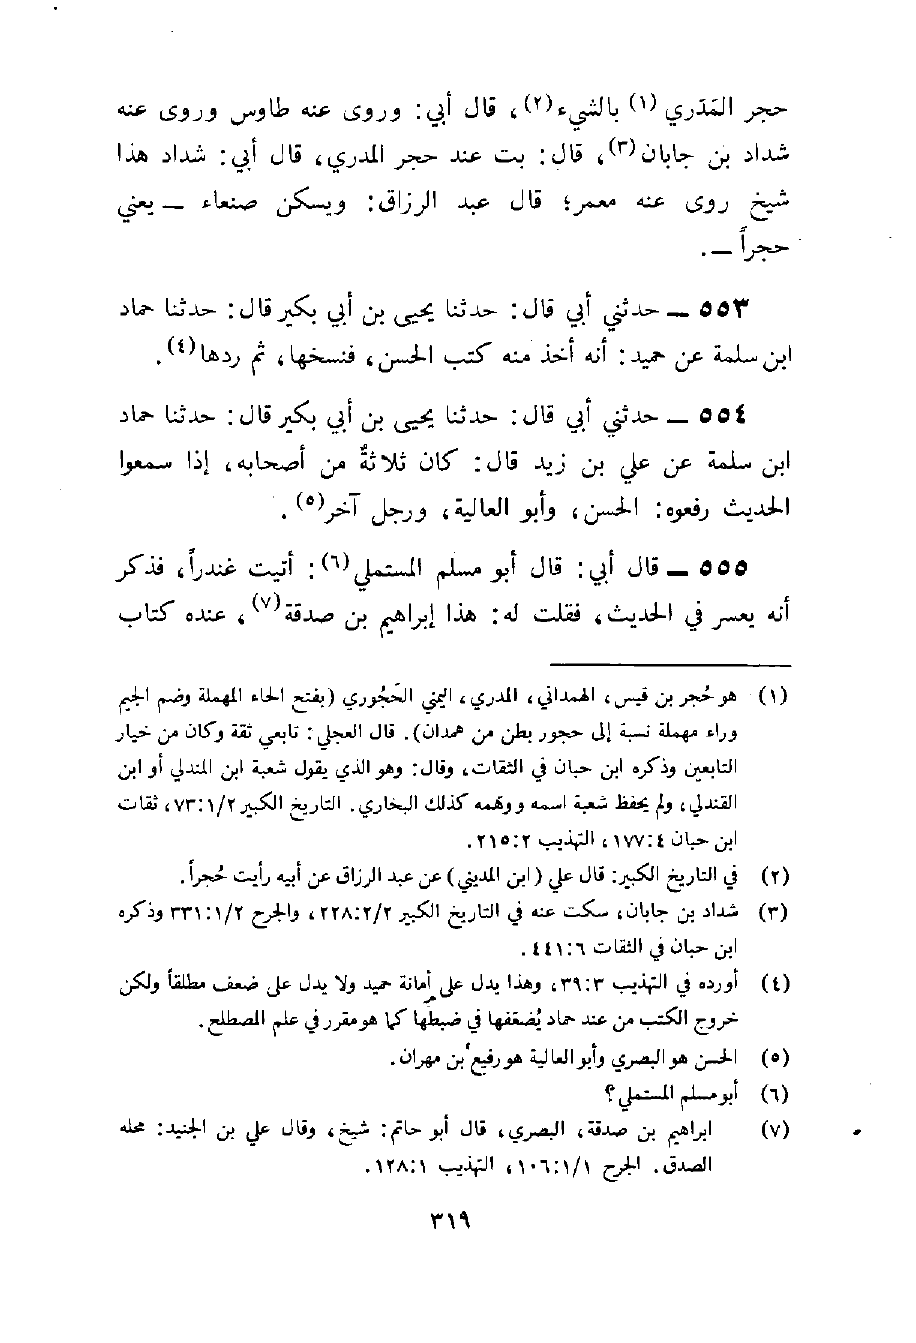 حجر المَدَري (١) بالشيء (٢)، قال أبي: وروى عنه طاوس وروى عنه
شداد بن جابان (٣)، قال: بت عند حجر المدري، قال أبي: شداد هذا
شيخ روى عنه معمر؛ قال عبد الرزاق: ويسكن صنعاء ــ يعني
حجراً ــ.
٥٥٣ ــ حدثني أبي قال: حدثنا يحيى بن أبي بكير قال: حدثنا حماد
ابن سلمة عن حميد: أنه أخذ منه كتب الحسن، فنسخها، ثم ردها (٤).
٥٥٤ ــ حدثني أبي قال: حدثنا يحيى بن أبي بكير قال: حدثنا حماد
ابن سلمة عن علي بن زيد قال: كان ثلاثةٌ من أصحابه، إذا سمعوا
الحديث رفعوه: الحسن، وأبو العالية، ورجل آخر (٥).
٥٥٥ ــ قال أبي: قال أبو مسلم المستملي (٦): أتيت غندراً، فذكر
أنه يعسر في الحديث، فقلت له: هذا إبراهيم بن صدقة (٧)، عنده كتاب
(١) هو حُجر بن قيس، الهمداني، المدري، اليمني الحَجُوري (بفتح الحاء المهملة وضم الجيم
وراء مهملة نسبة إلى حجور بطن من همدان). قال العجلي: تابعي ثقة وكان من خيار
التابعين وذكره ابن حبان في الثقات، وقال: وهو الذي يقول شعبة ابن المندلي أو ابن
القندلي، ولم يحفظ شعبة اسمه ووهمه كذلك البخاري. التاريخ الكبير ٧٣:١/٢، ثقات
ابن حبان ١٧٧:٤، التهذيب ٢١٥:٢.
(٢) في التاريخ الكبير: قال علي (ابن المديني) عن عبد الرزاق عن أبيه رأيت حُجراً.
(٣) شداد بن جابان، سكت عنه في التاريخ الكبير ٢٢٨:٢/٢، والجرح ٣٣١:١/٢ وذكره
ابن حبان في الثقات ٤٤١:٦.
(٤) أورده في التهذيب ٣٩:٣، وهذا يدل على أمانة حميد ولا يدل على ضعف مطلقاً ولكن
خروج الكتب من عند حماد يُضعّفها في ضبطها كما هو مقرر في علم المصطلح.
(٥) الحسن هو البصري وأبو العالية هو رفيع بن مهران.
(٦) أبو مسلم المستملي؟
(٧) ابراهيم بن صدقة، البصري، قال أبو حاتم: شيخ، وقال علي بن الجنيد: محله
الصدق. الجرح ١٠٦:١/١، التهذيب ١٢٨:١.
٣١٩